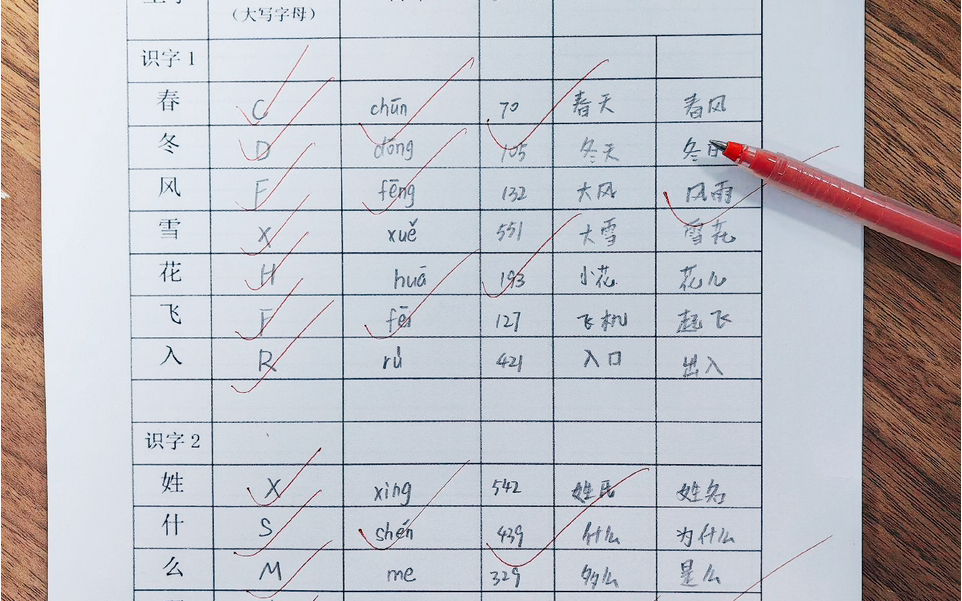 （大写字母）
识字1
春 C chūn 70 春天 春风
冬 D dōng 105 冬天 冬日
风 F fēng 132 大风 风雨
雪 X xuě 551 大雪 雪花
花 H huā 193 小花 花儿
飞 F fēi 127 飞机 起飞
入 R rù 421 入口 出入
识字2
姓 X xìng 542 姓氏 姓名
什 S shén 439 什么 为什么
么 M me 329 多么 是么